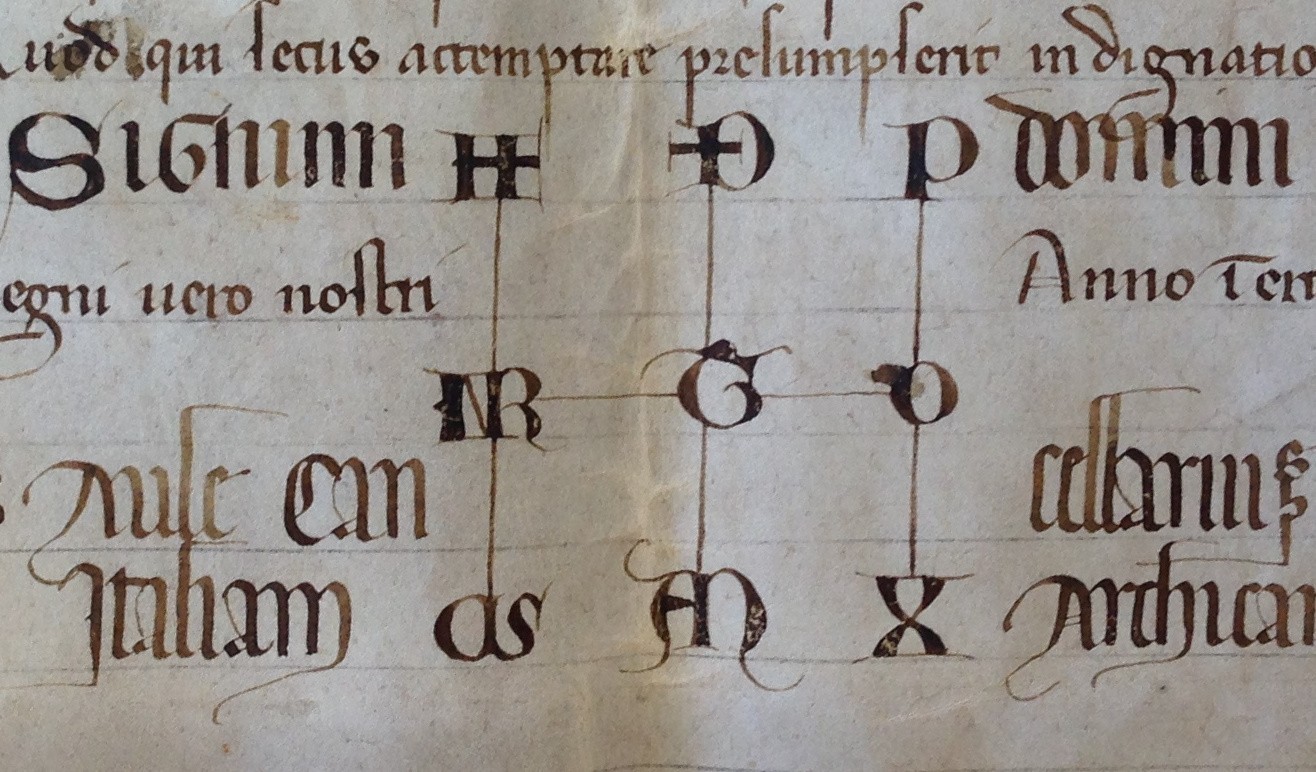 quod qui secus acttemptare presumpserit indignatio
Signum H D P domini
egni uero nostri Anno Terr
NR G O
Aule Can cellarius
Italiam OS M X Archican